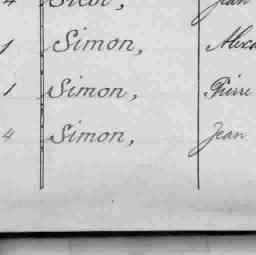 Jean
1 Simon, Alexa
1 Simon, Pierre
4 Simon, Jean